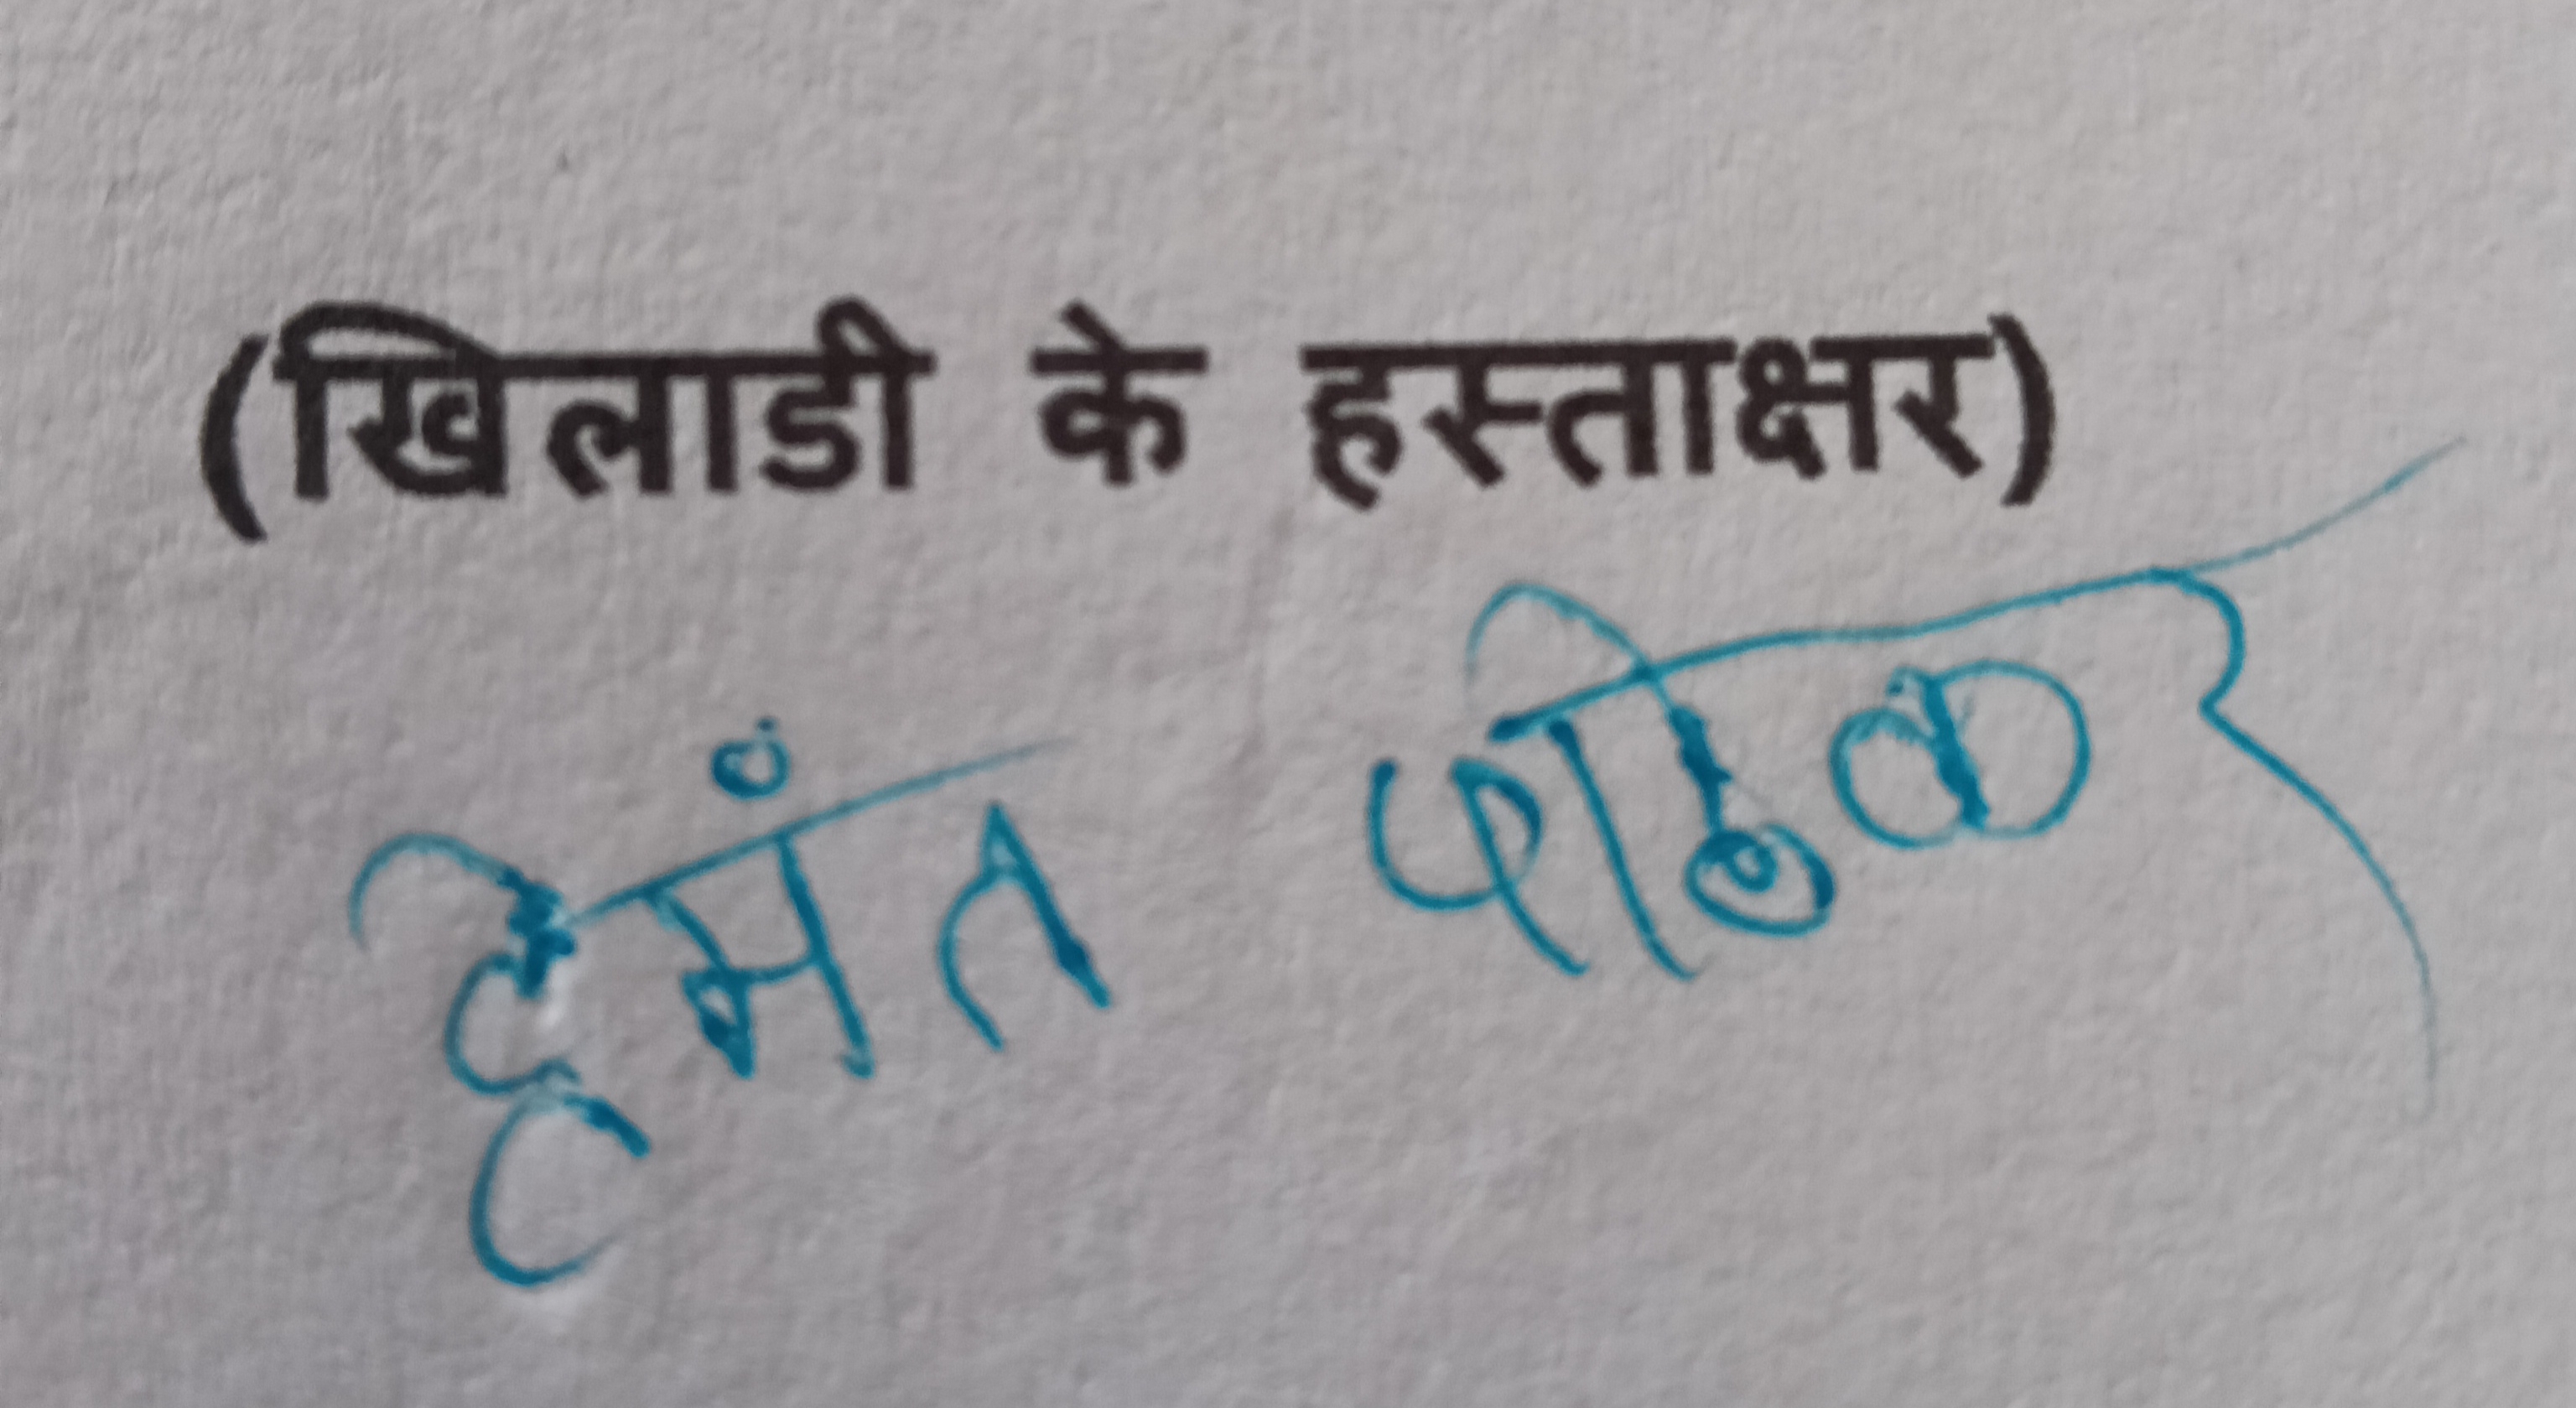 (खिलाडी के हस्ताक्षर)
हेमंत